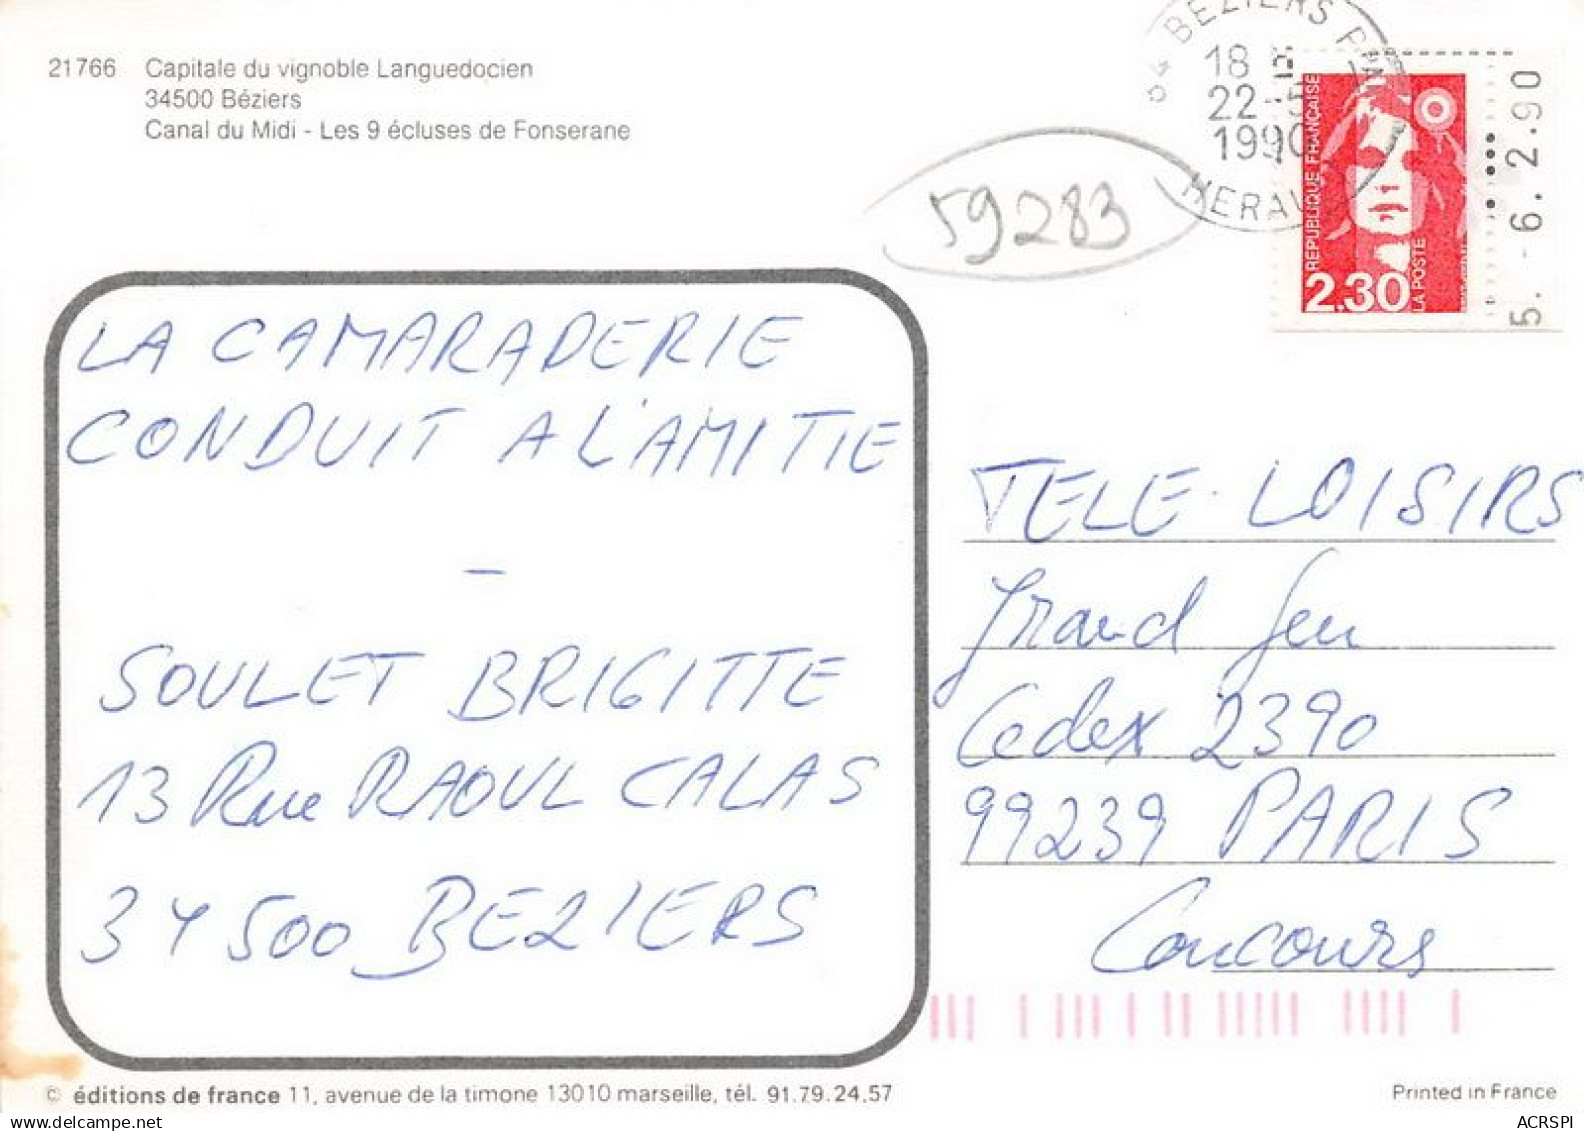 21766 Capitale du vignoble Languedocien
34500 Béziers
Canal du Midi - Les 9 écluses de Fonserane
BEZIERS PPAL
18 H
22-5
1990
HERAULT
REPUBLIQUE FRANÇAISE
2.30
LA POSTE
5. -6. 2. 90
59283
LA CAMARADERIE
CONDUIT A L'AMITIE
-
SOULET BRIGITTE
13 Rue RAOUL CALAS
34500 BEZIERS
TELE-LOISIRS
Grand Jeu
Cedex 2390
99239 PARIS
Concours
© éditions de france 11, avenue de la timone 13010 marseille, tél. 91.79.24.57
Printed in France
ACRSPI